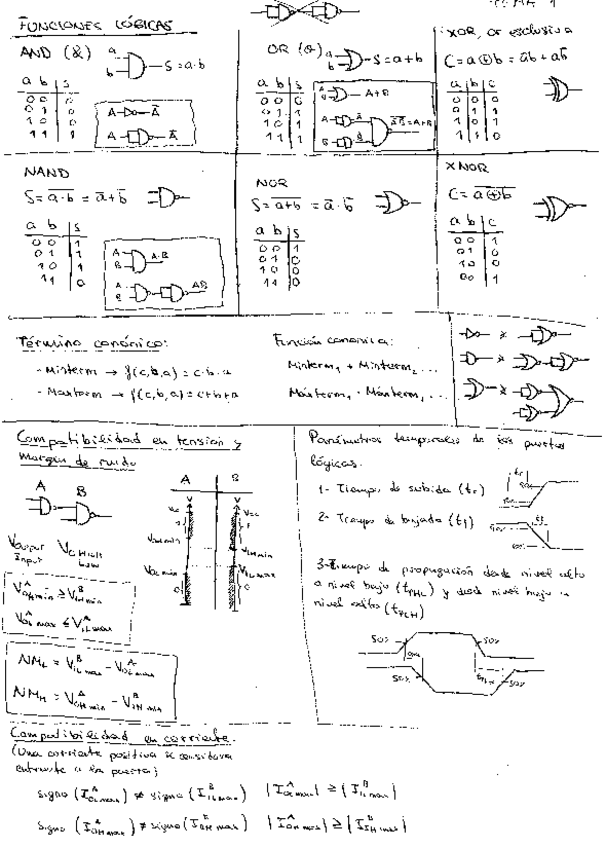 TEMA 1
FUNCIONES LÓGICAS
AND (&) a b S = a·b
a b S
0 0 0
0 1 0
1 0 0
1 1 1
A Ā
A Ā
OR (⊕) a b S = a+b
a b S
0 0 0
0 1 1
1 0 1
1 1 1
A+B
XOR, or esclusiva
C = a⊕b = āb + ab̄
a b C
0 0 0
0 1 1
1 0 1
1 1 0
NAND
S = \overline{a·b} = ā+b̄
a b S
0 0 1
0 1 1
1 0 1
1 1 0
A B A·B
A B A·B
NOR
S = \overline{a+b} = ā·b̄
a b S
0 0 1
0 1 0
1 0 0
1 1 0
XNOR
C = \overline{a⊕b}
a b C
0 0 1
0 1 0
1 0 0
0 0 1
Término canónico:
- Minterm → f(c,b,a) = c·b·a
- Maxterm → f(c,b,a) = c+b+a
Función canónica:
Minterm₁ + Minterm₂ ...
Máxterm₁ · Máxterm₂ ...
Compatibilidad en tensión y
Margen de ruido
A B
Voutput
Input
V_OHmin^A ≥ V_IHmin^B
V_OLmax^A ≤ V_ILmax^B
NM_L = V_ILmax^B - V_OLmax^A
NM_H = V_OHmin^A - V_IHmin^B
A B
V V
Vcc Vcc
1 1
V_OHmin V_IHmin
V_OLmin V_ILmax
0 0
Parámetros temporales de las puertas
lógicas.
1- Tiempo de subida (tr)
2- Tiempo de bajada (tf)
3- Tiempo de propagación desde nivel alto
a nivel bajo (tPHL) y desde nivel bajo a
nivel alto (tPLH)
50% 50%
tPHL tPLH
50% 50%
Compatibilidad en corriente.
(Una corriente positiva se considera
entrante a la puerta)
signo (I_OLmax^A) ≠ signo (I_ILmax^B) |I_OLmax^A| ≥ |I_ILmax^B|
signo (I_OHmax^A) ≠ signo (I_IHmax^B) |I_OHmax^A| ≥ |I_IHmax^B|